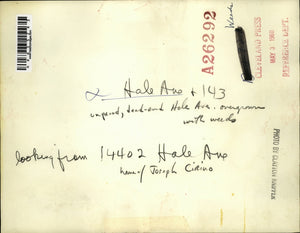 Weeds
A26292
CLEVELAND PRESS
MAY 3 1960
REFERENCE DEPT.
Hale Ave + 143
unpaved, dead-end Hale Ave. overgrown
with weeds
looking from 14402 Hale Ave
home of Joseph Cirino
PHOTO BY CLAYTON KNIPPER